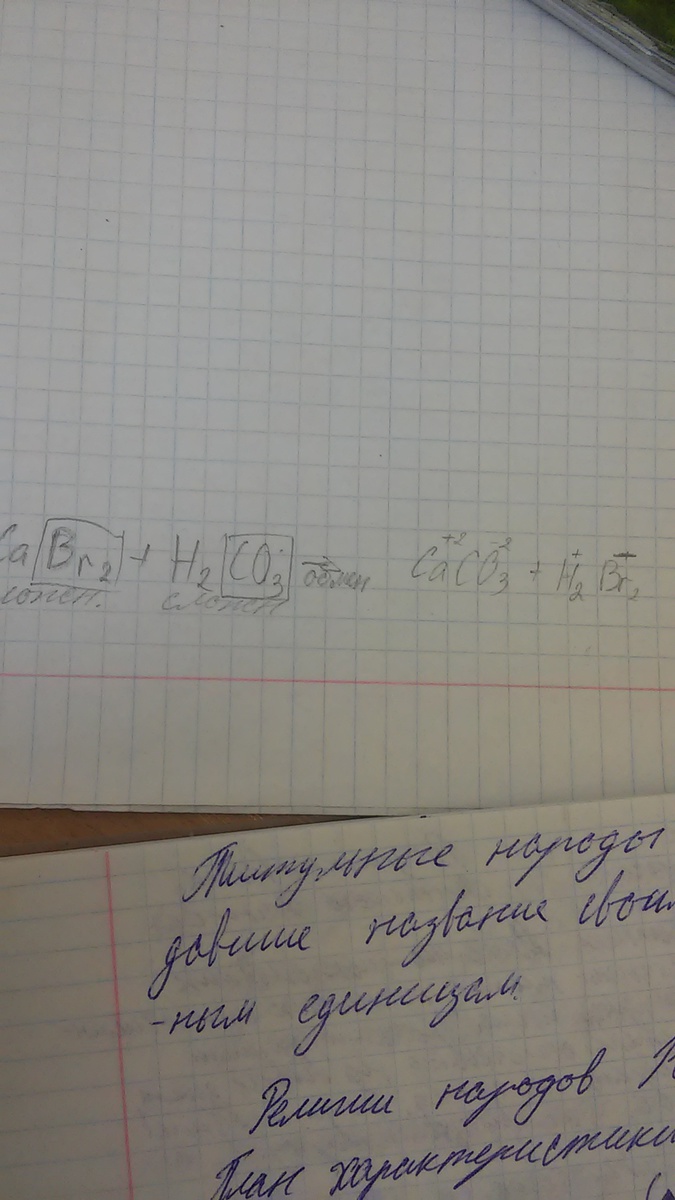 Ca Br₂ + H₂ CO₃ → Ca⁺² CO₃⁻² + H₂⁺ Br₂⁻
сложен обмен
Титульные народы
давшие название свои
-ным единицам.
Религии народов Р
План характеристики